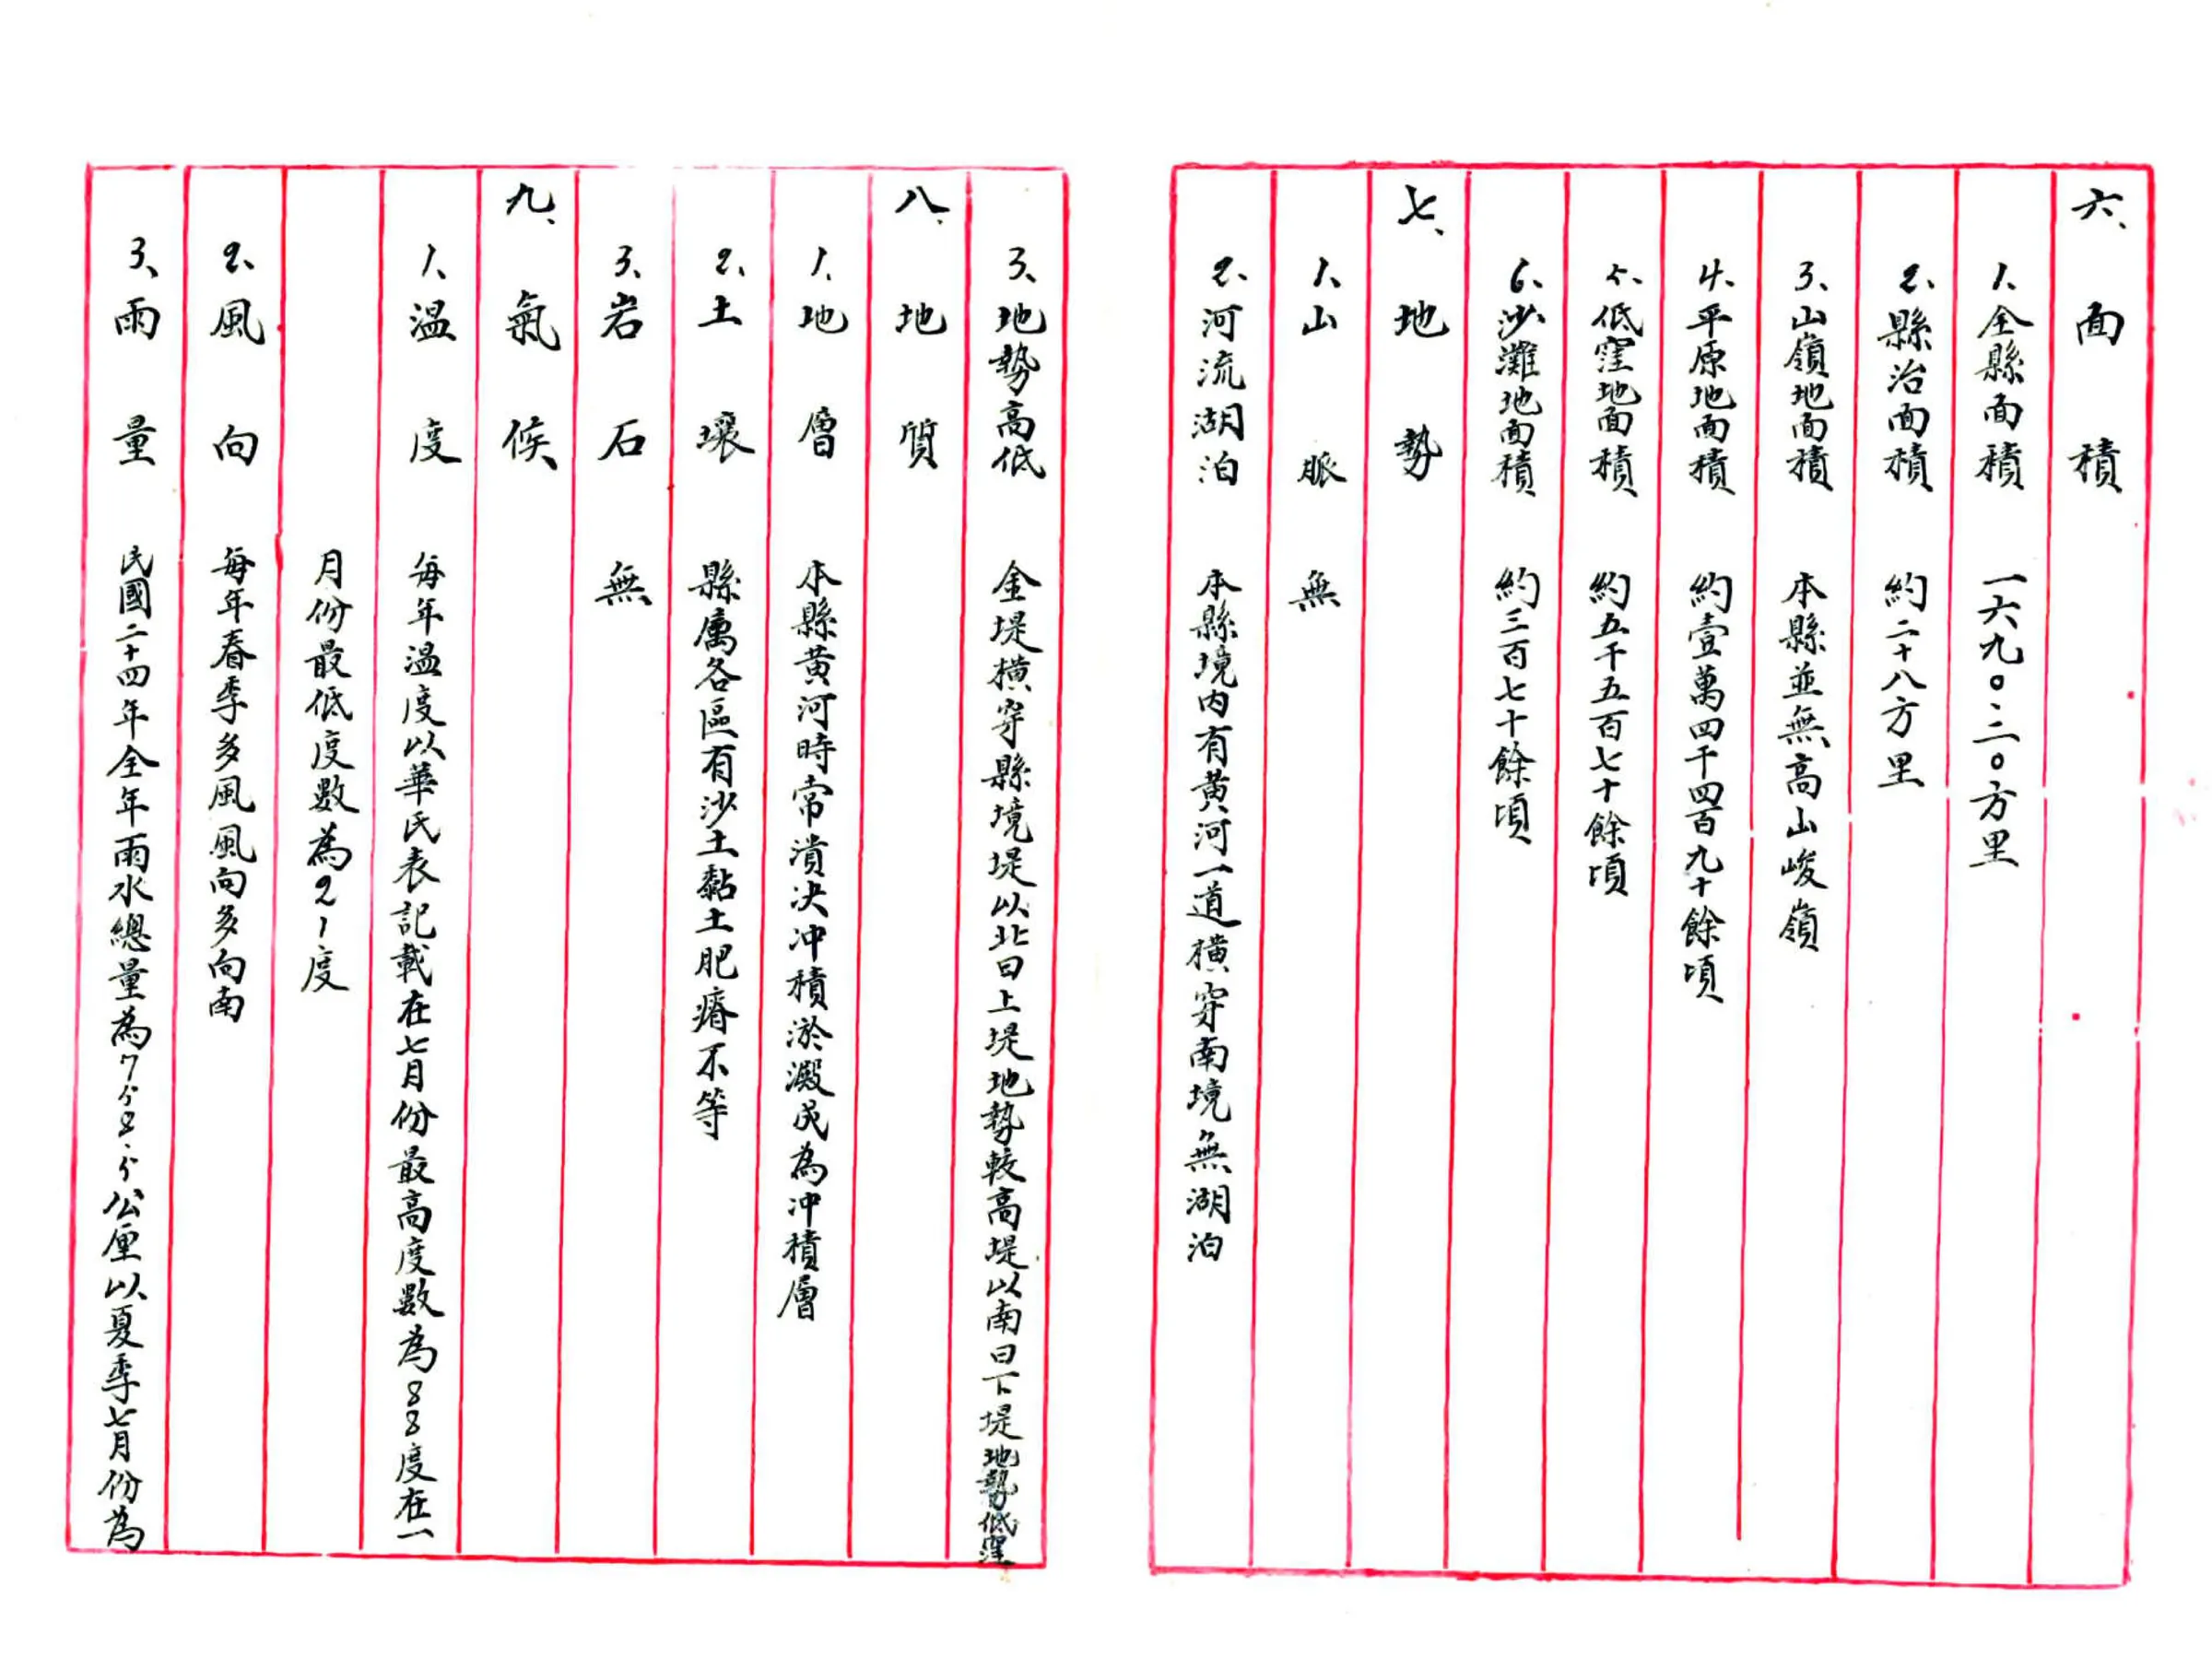 六、面積
1、全縣面積 一六九〇.二〇方里
2、縣治面積 約二十八方里
3、山嶺地面積 本縣並無高山峻嶺
4、平原地面積 約壹萬四千四百九十餘頃
5、低窪地面積 約五千五百七十餘頃
6、沙灘地面積 約三百七十餘頃
七、地勢
1、山脈 無
2、河流湖泊 本縣境內有黄河一道橫穿南境無湖泊
3、地勢高低 金堤橫穿縣境堤以北曰上堤地勢較高堤以南曰下堤地勢低窪
八、地質
1、地層 本縣黄河時常潰决冲積淤澱成為冲積層
2、土壤 縣属各區有沙土黏土肥瘠不等
3、岩石 無
九、氣候
1、温度 每年温度以華氏表記載在七月份最高度數為88度在一
月份最低度數為21度
2、風向 每年春季多風風向多向南
3、雨量 民國二十四年全年雨水總量為752.5公厘以夏季七月份為